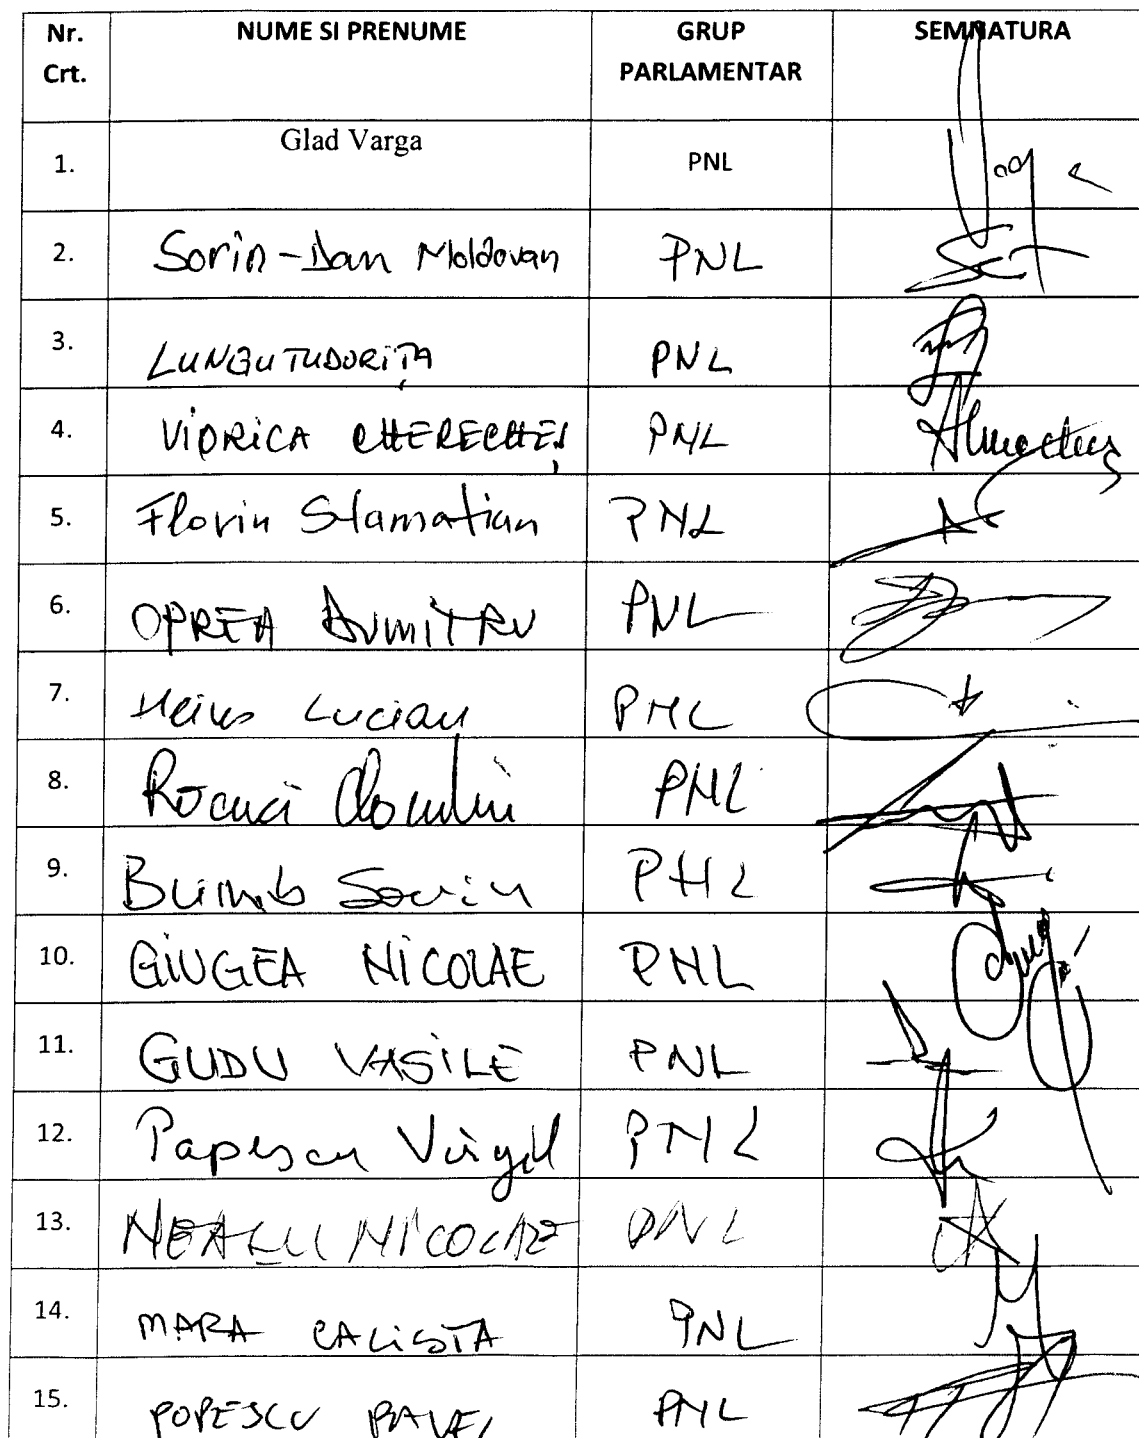 Nr. Crt. NUME SI PRENUME GRUP PARLAMENTAR SEMNATURA
1. Glad Varga PNL
2. Sorin-Dan Moldovan PNL
3. LUNGU TUDORIȚA PNL
4. VIORICA CHERECHEȘ PNL
5. Florin Stamatian PNL
6. OPREA DUMITRU PNL
7. Heius Lucian PNL
8. PNL
9. Bumb Sorin PNL
10. GIUGEA NICOLAE PNL
11. GUDU VASILE PNL
12. Popescu Virgil PNL
13. NEAGU NICOLAE PNL
14. MARA CALISTA PNL
15. POPESCU PAVEL PNL